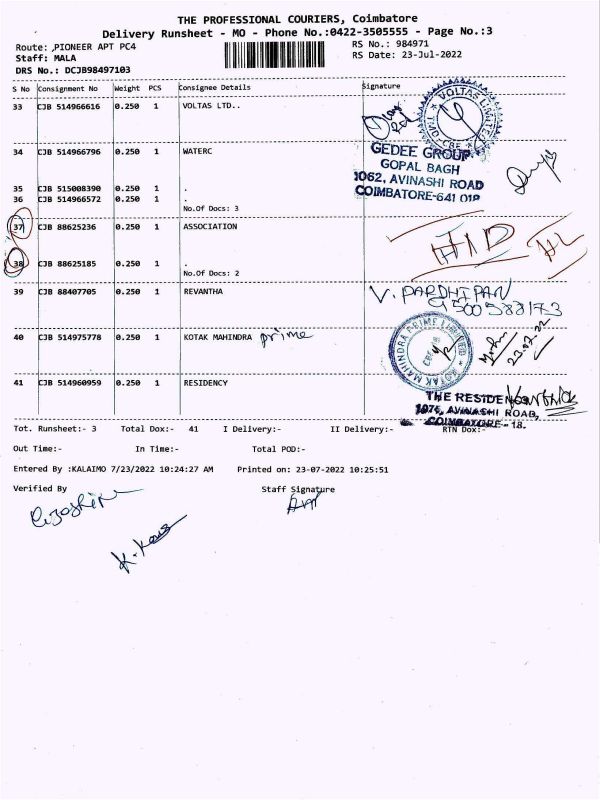 THE PROFESSIONAL COURIERS, Coimbatore
Delivery Runsheet - MO - Phone No.:0422-3505555 - Page No.:3
Route: ,PIONEER APT PC4 RS No.: 984971
Staff: MALA RS Date: 23-Jul-2022
DRS No.: DCJB98497103
S No Consignment No Weight PCS Consignee Details Signature
33 CJB 514966616 0.250 1 VOLTAS LTD..
VOLTAS LIMITED
34 CJB 514966796 0.250 1 WATERC
GEDEE GROUP
GOPAL BAGH
1062, AVINASHI ROAD
COIMBATORE-641 018
35 CJB 515008390 0.250 1 .
36 CJB 514966572 0.250 1 .
No.Of Docs: 3
37 CJB 88625236 0.250 1 ASSOCIATION
38 CJB 88625185 0.250 1 .
No.Of Docs: 2
39 CJB 88407705 0.250 1 REVANTHA V. PARDHIPAN
9500588173
40 CJB 514975778 0.250 1 KOTAK MAHINDRA prime
KOTAK MAHINDRA PRIME LIMITED
23.07.22
41 CJB 514960959 0.250 1 RESIDENCY
THE RESIDEN
1076, AVINASHI ROAD,
COIMBATORE - 18.
Tot. Runsheet:- 3 Total Dox:- 41 I Delivery:- II Delivery:- RTN Dox:-
Out Time:- In Time:- Total POD:-
Entered By :KALAIMO 7/23/2022 10:24:27 AM Printed on: 23-07-2022 10:25:51
Verified By Staff Signature